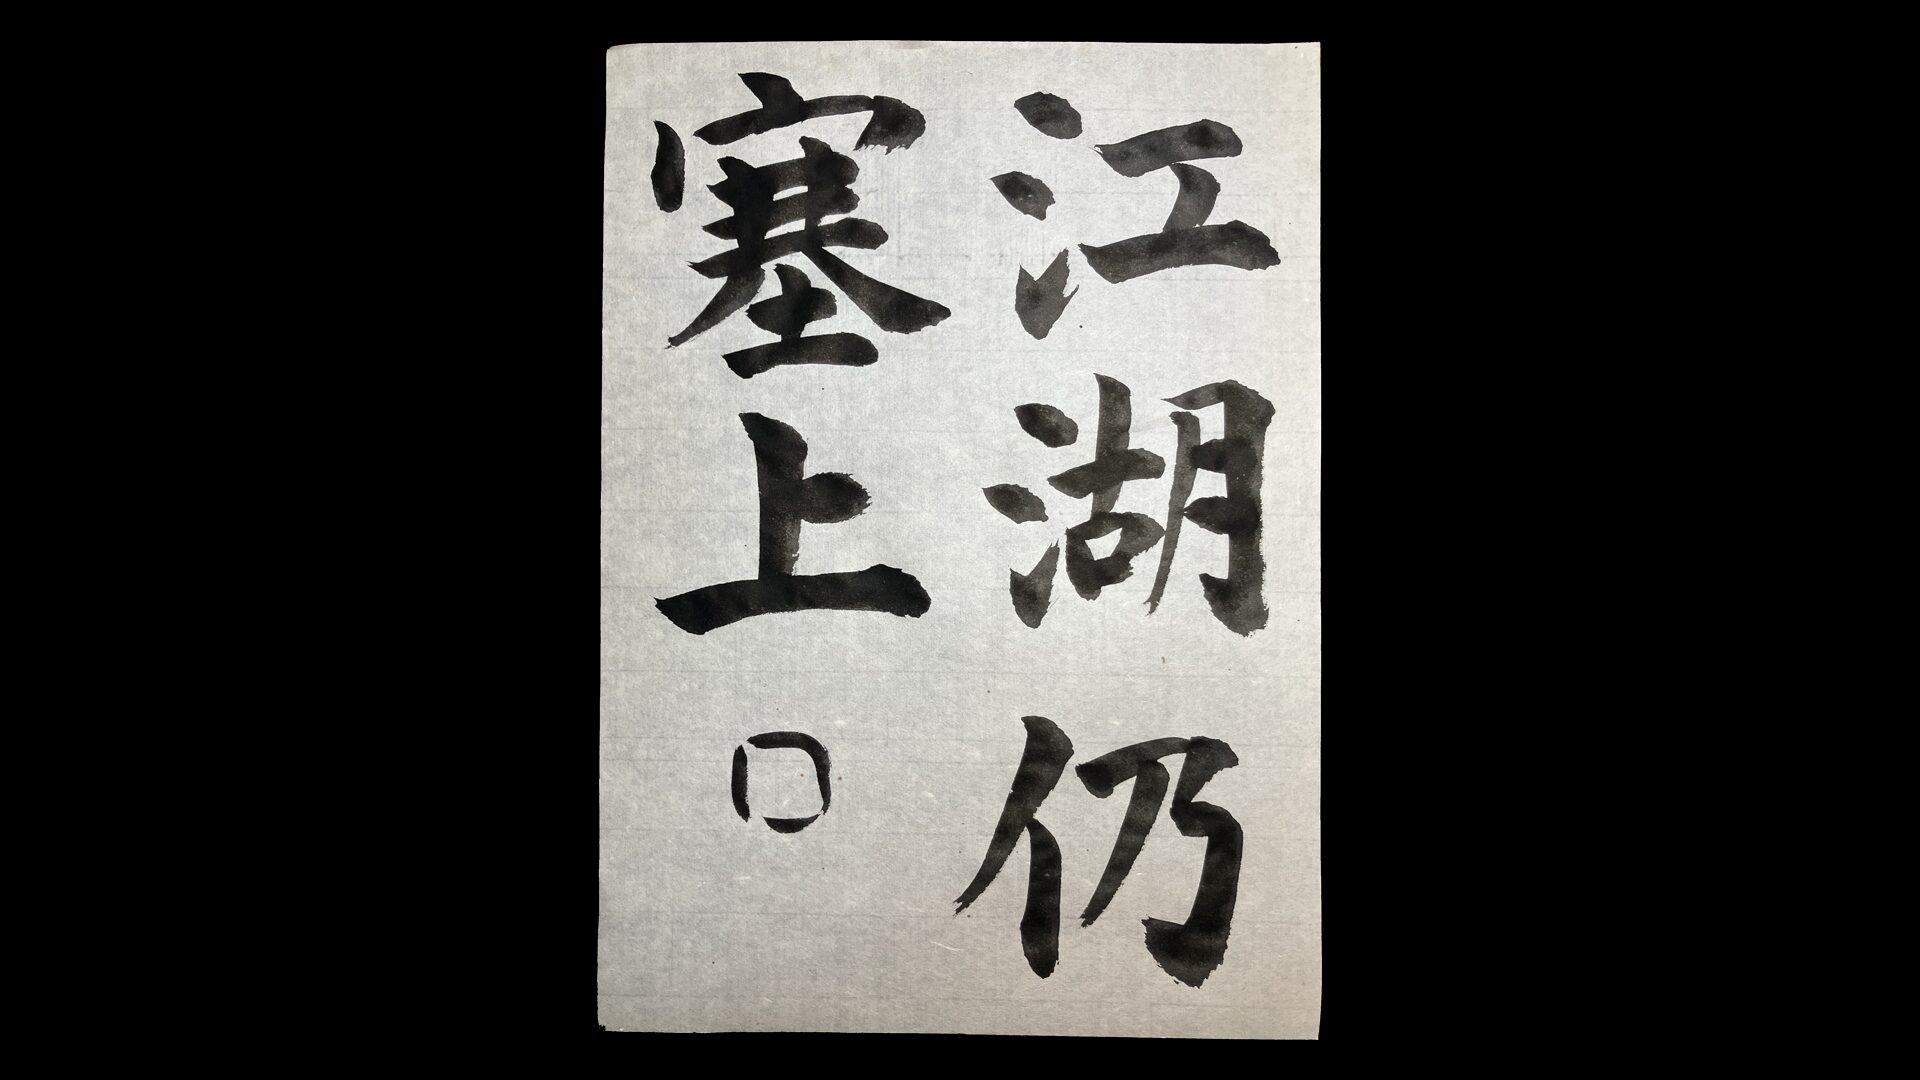 江湖仍
塞上。